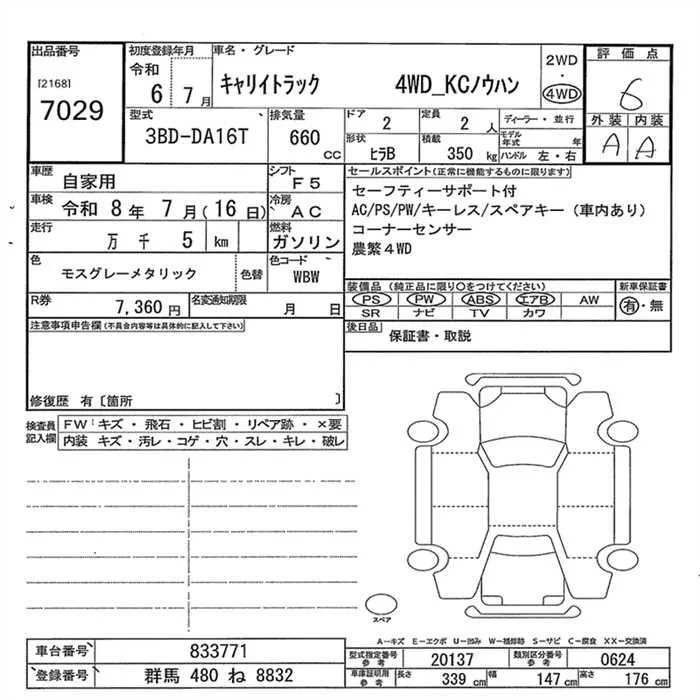 出品番号
[2168]
7029
初度登録年月
令和
6 7月
車名・グレード
キャリイトラック 4WD_KCノウハン
2WD
・
4WD
評価点
6
外装 内装
A A
型式
3BD-DA16T
排気量
660
CC
ドア
2
定員
2 人
ディーラー・並行
モデル年式 年
形状
ヒラB
積載
350 kg
ハンドル 左・右
車歴
自家用
シフト
F5
セールスポイント(正常に機能するものに限ります)
セーフティーサポート付
AC/PS/PW/キーレス/スペアキー(車内あり)
コーナーセンサー
農繁4WD
車検
令和 8年 7月(16日)
冷房
AC
走行
万 千 5 km
燃料
ガソリン
色
モスグレーメタリック
色替
色コード
WBW
装備品(純正品に限り○をつけてください)
PS PW ABS エアB AW
SR ナビ TV カワ
新車保証書
有・無
R券
7,360円
名変通知期限
月 日
後日品
保証書・取説
注意事項申告欄(不具合内容等は具体的に記入して下さい)
修復歴 有〔箇所 〕
検査員記入欄
FW:キズ・飛石・ヒビ割・リペア跡・×要
内装 キズ・汚レ・コゲ・穴・スレ・キレ・破レ
スペア
A-キズ E-エクボ U-凹み W-補修跡 S-サビ C-腐食 XX-交換済
車台番号
833771
登録番号
群馬 480 ね 8832
型式指定番号
参考
20137
類別区分番号
参考
0624
車庫証明用
参考
長さ 339 cm 幅 147 cm 高さ 176 cm